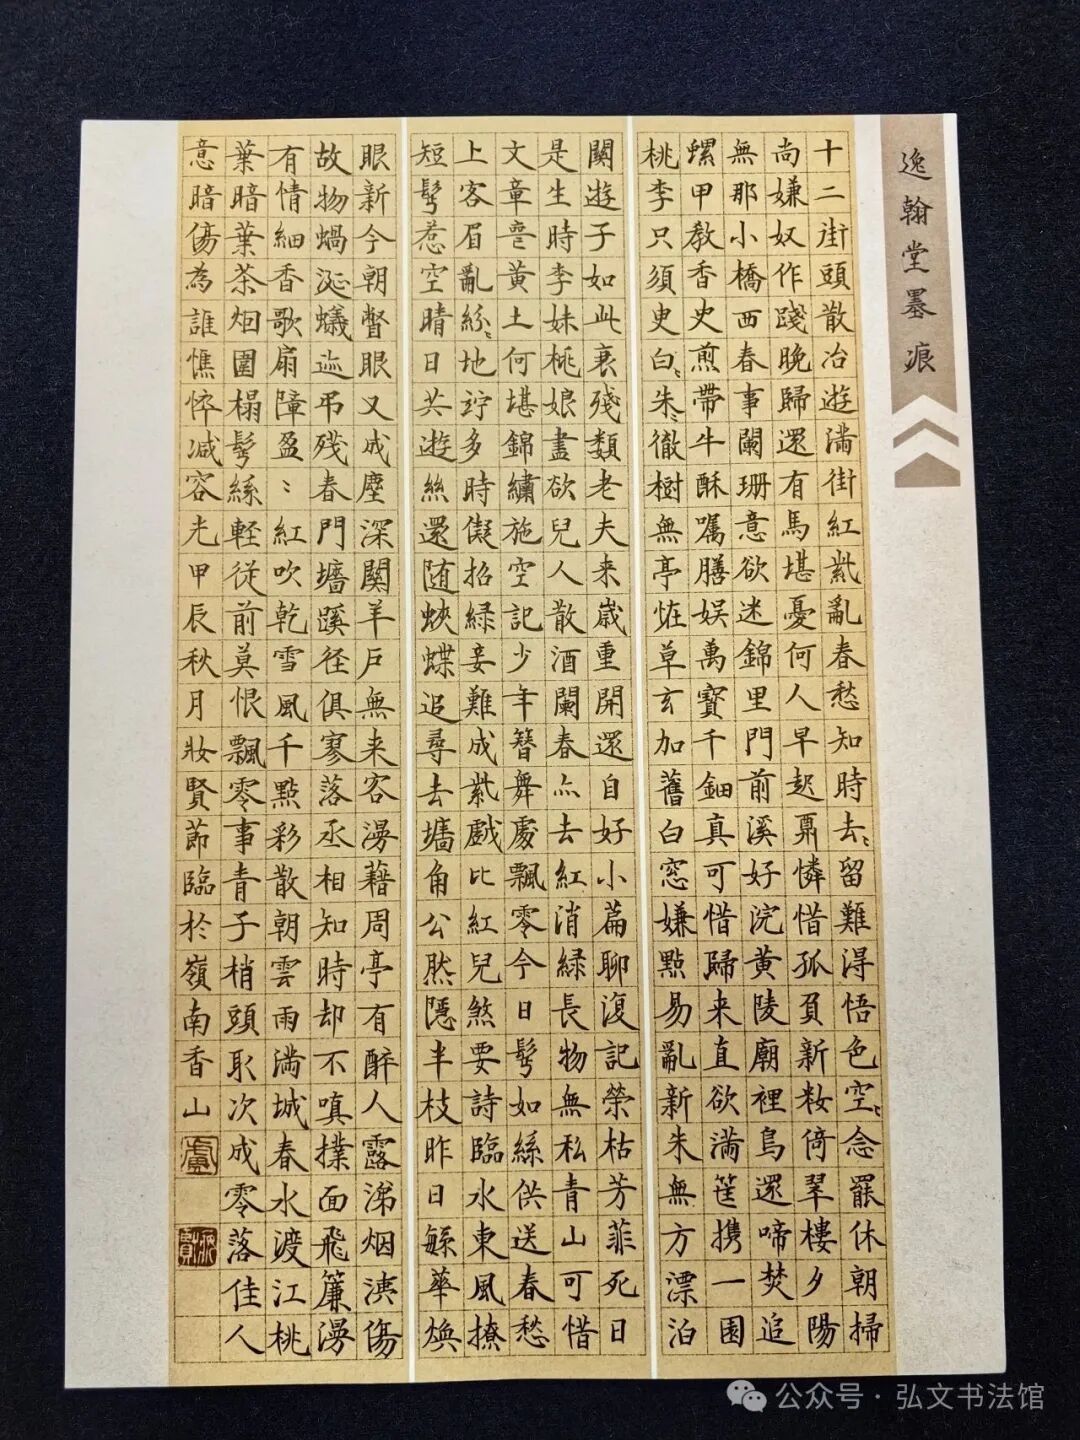 逸翰堂墨痕
十二街頭散冶遊滿街紅紫亂春愁知時去〻留難得悟色空〻念罷休朝掃
尚嫌奴作踐晚歸還有馬堪憂何人早起憐惜孤負新妝倚翠樓夕陽
無那小橋西春事闌珊意欲迷錦里門前溪好浣黃陵廟裡鳥還啼焚追
螺甲教香史煎帶牛酥囑膳娛萬寶千鈿真可惜歸来直欲滿筐携一園
桃李只須臾白〻朱〻徹樹無亭恠草玄加舊白窓嫌點易亂新朱無方漂泊
關遊子如此衰殘類老夫来歲重開還自好小篇聊復記榮枯芳菲死日
是生時李妹桃娘盡欲兒人散酒闌春亦去紅消緑長物無私青山可惜
文章喪黃土何堪錦繡施空記少年簪舞處飄零今日髩如絲供送春愁
上客眉亂紛〻地竚多時儗招緑妾難成紫戲比紅兒煞要詩臨水東風撩
短髩惹空晴日共遊絲還随蛺蝶追尋去墻角公然隱半枝昨日繁華煥
眼新今朝瞥眼又成塵深關羊戶無来客漫藉周亭有醉人露涕烟洟傷
故物蝸涎蟻迹弔殘春門墻蹊徑俱寥落丞相知時却不嗔撲面飛簾漫
有情細香歌扇障盈〻紅吹乾雪風千點彩散朝雲雨滿城春水渡江桃
葉暗葉茶烟圍榻髩絲輕從前莫恨飄零事青子梢頭取次成零落佳人
意暗傷為誰憔悴減容光甲辰秋月妝賢節臨於嶺南香山
公众号·弘文书法馆